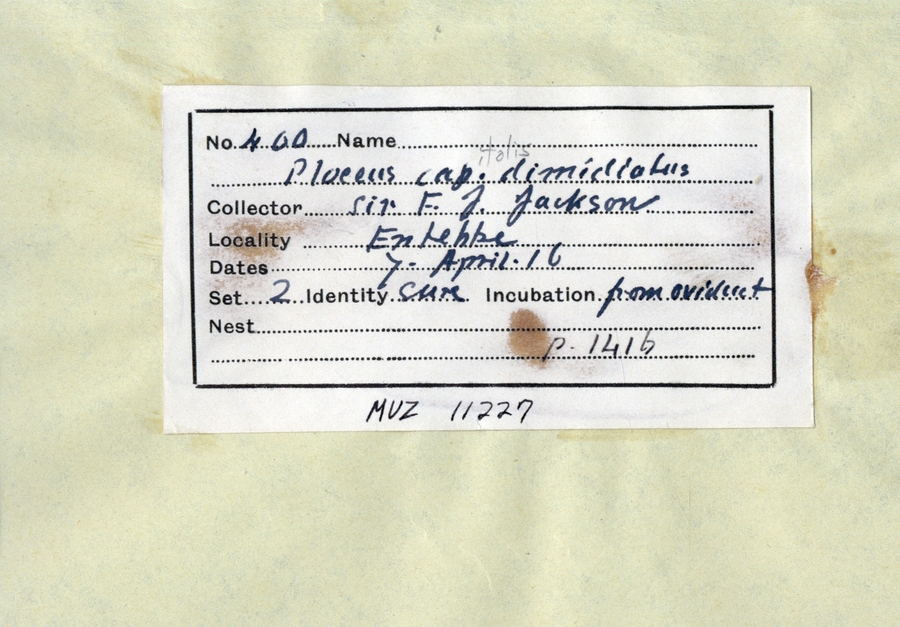 No. 400 Name
italis
Ploceus cap. dimidiatus
Collector Sir F. J. Jackson
Locality Entebbe
Dates 7. April. 16
Set 2 Identity sure Incubation from oviduct
Nest
p. 1416
MVZ 11227